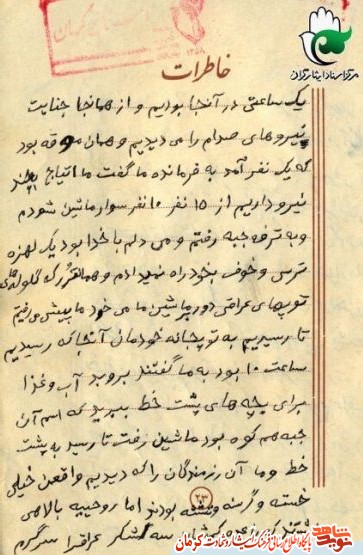 مرکز اسناد ایثارگران
خاطرات
یک ساعتی در آنجا بودیم و از همانجا جنایت
نیروهای صدام را می دیدیم و همان موقه بود
که یک نفر آمد به فرمانده ما گفت ما اتیاج به چند
نیرو داریم از ۱۵ نفر ۱۰ نفر سوار ماشین شودم
و به ترفه جبه رفتم و می دلم با خدا بود یک لهزه
ترس و خوف بخود راه نمیدادم و همانتور که گلوله های
توپهای عراقی دور ماشین ما می خورد ما بپیش می رفتیم
تا رسیدیم به توپخانه خودمان آنجا که رسیدیم
ساعت ۱۰ بود به ما گفتند بروید آب و غذا
برای بچه های پشت خط ببرید که اسم آن
جبه هم کوه بود ماشین رفت تا رسید به پشت
خط و ما آن رزمندگان را که دیدیم واقعن خیلی
خسته و گرسنه و تشنه بودند اما روحییه بالاهی
۲۳
لشگر عراقرا سرگرم
پایگاه اطلاع رسانی فرهنگ ایثار و شهادت کرمان